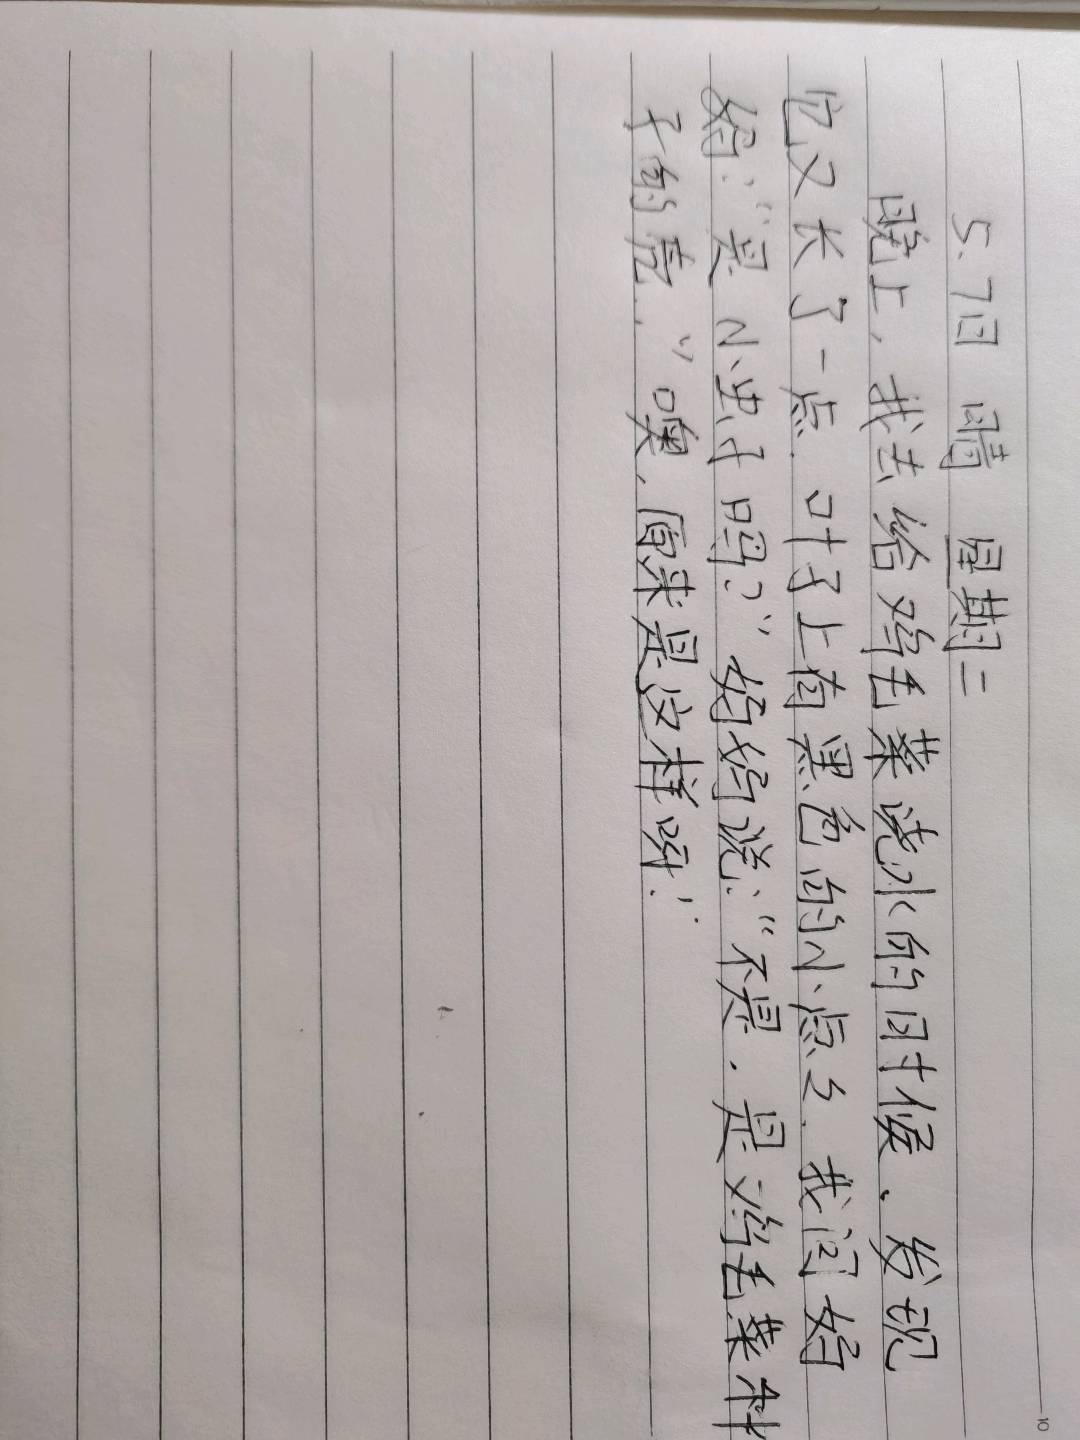 5.7日 晴 星期二
晚上，我去给鸡毛菜浇水的时候、发现
它又长了一点．叶子上有黑色的小点ろ．我问妈
妈："是小虫子吗？"妈妈说："不是．是鸡毛菜种
子的壳．"噢，原来是这样呀！
10